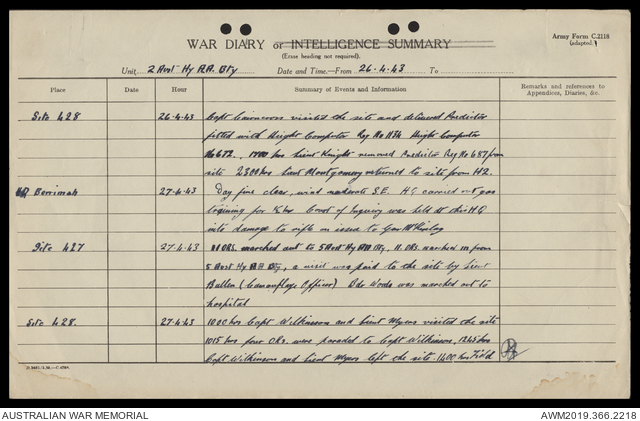 WAR DIARY or INTELLIGENCE SUMMARY
Army Form C.2118
(adapted.)
(Erase heading not required).
Unit 2 Aust Hy A.A. Bty Date and Time—From 26-4-43 To
Place Date Hour Summary of Events and Information Remarks and references to
Appendices, Diaries, &c.
Site 428 26-4-43 Capt Cameron visited the site and delivered Predictor
fitted with Height Computor Reg No 1134 Height Computor
No 672. hrs Lieut Knight removed Predictor Reg No 687 from
site 2300 hrs Lieut Montgomery returned to site from H2.
Berrimah 27-4-43 Day fine clear, wind moderate S.E. HQ carried out gas
training for ½ hr Court of Inquiry was held at this HQ
into damage to rifle on issued to Gnr
Site 427 27-4-43 11 ORS. marched out to 5 Aust Hy AA Bty, 11 ORS. marched in from
5 Aust Hy AA Bty, a visit was paid to the site by Lieut
Bullen (Camouflage Officer) Bdr Woods was marched out to
hospital
Site 428. 27-4-43 1000 hrs Capt Wilkinson and Lieut Myers visited the site
1015 hrs four ORs. were paraded to Capt Wilkinson, 1245 hrs
Capt Wilkinson and Lieut Myers left the site. 1400 hrs Field
AUSTRALIAN WAR MEMORIAL AWM2019.366.2218